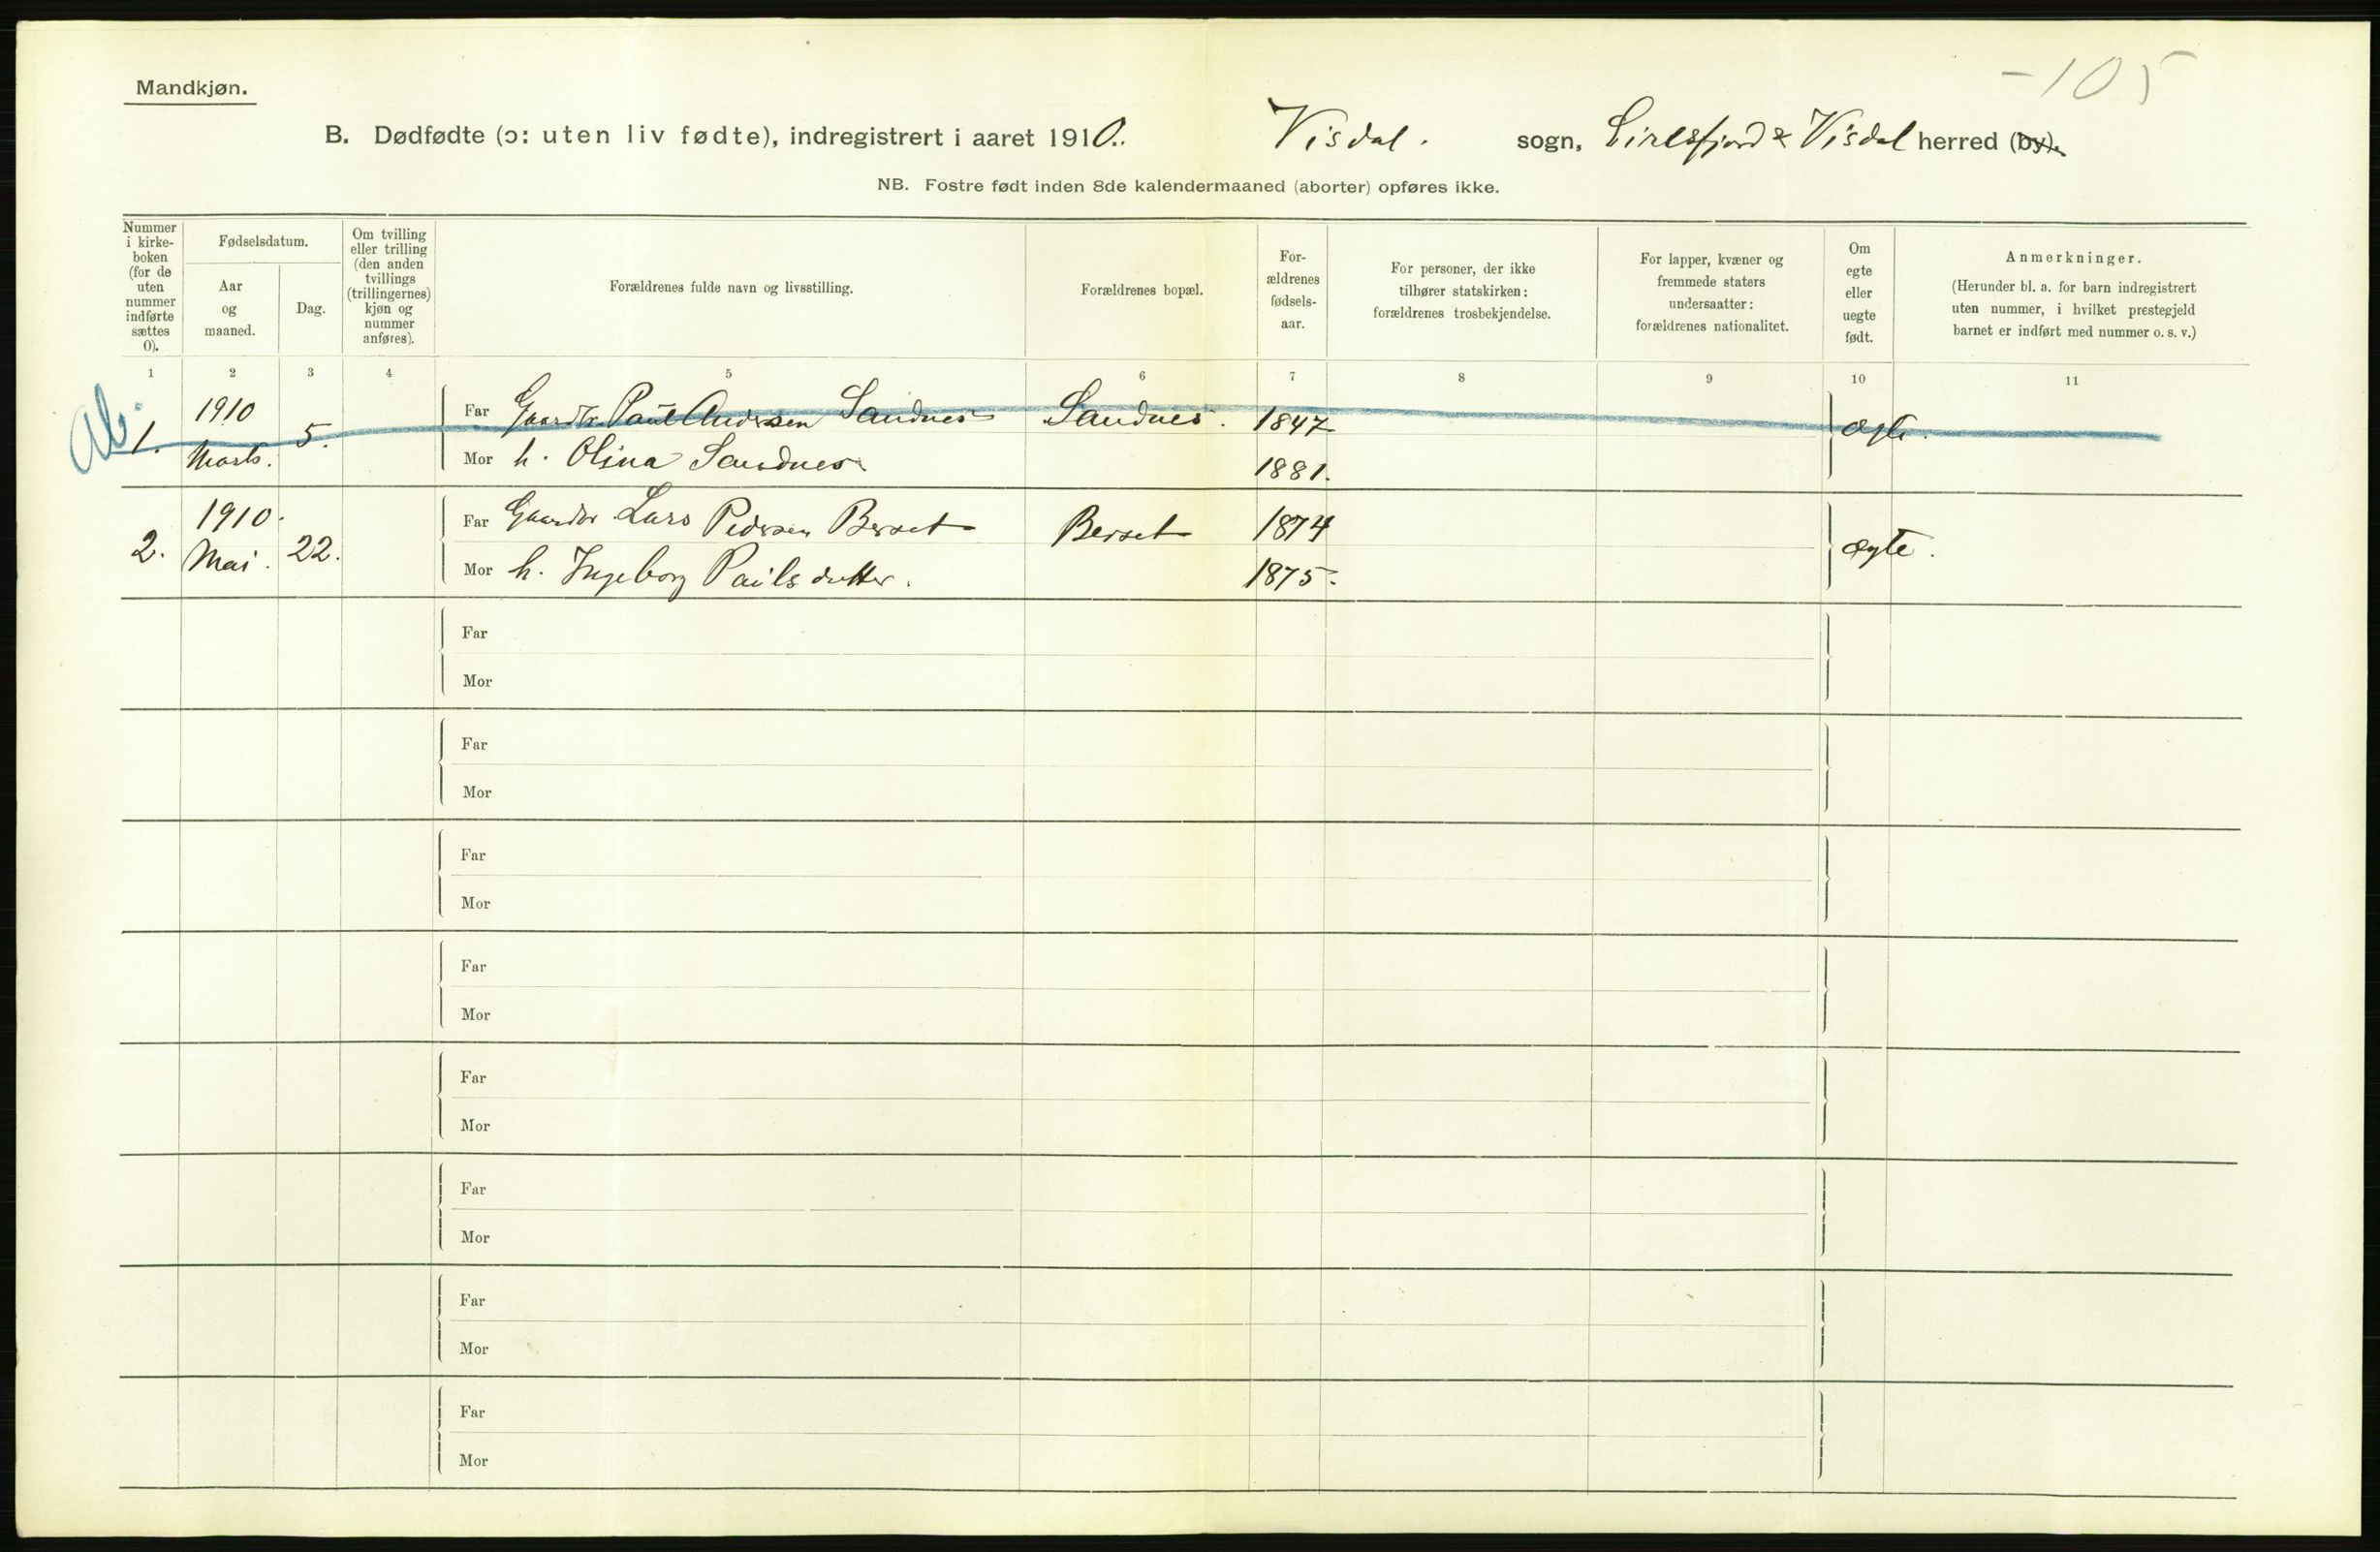 -105
Mandkjøn.
B. Dødfødte (ɔ: uten liv fødte), indregistrert i aaret 1910. Visdal. sogn, Eiresfjord & Visdal herred (by).
NB. Fostre født inden 8de kalendermaaned (aborter) opføres ikke.
Nummer i kirke-boken (for de uten nummer indførte sættes 0).
Fødselsdatum.
Aar og maaned.
Dag.
Om tvilling eller trilling (den anden tvillings (trillingernes) kjøn og nummer anføres).
Forældrenes fulde navn og livsstilling.
Forældrenes bopæl.
For-ældrenes fødsels-aar.
For personer, der ikke tilhører statskirken: forældrenes trosbekjendelse.
For lapper, kvæner og fremmede staters undersaatter: forældrenes nationalitet.
Om egte eller uegte født.
Anmerkninger.
(Herunder bl. a. for barn indregistrert uten nummer, i hvilket prestegjeld barnet er indført med nummer o. s. v.)
1 2 3 4 5 6 7 8 9 10 11
Ab.
1. 1910 Marts. 5. Far Gaardbr. Paul Andersen Sandnes Sandnes. 1847 ægte.
Mor h. Olina Sandnes 1881.
2. 1910. Mai. 22. Far Gaardbr Lars Pedersen Berset Berset 1874 ægte.
Mor h. Ingeborg Paulsdatter. 1875.
Far
Mor
Far
Mor
Far
Mor
Far
Mor
Far
Mor
Far
Mor
Far
Mor
Far
Mor